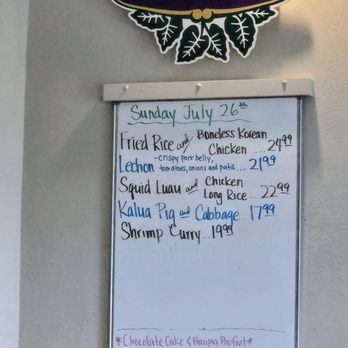 Sunday July 26th
Fried Rice and Boneless Korean
Chicken ... 24.99
Lechon - crispy pork belly,
tomatoes, onions and patis ... 21.99
Squid Luau and Chicken
Long Rice .. 22.99
Kalua Pig and Cabbage 17.99
Shrimp Curry ... 19.99
*Chocolate Cake & Haupia Parfait*